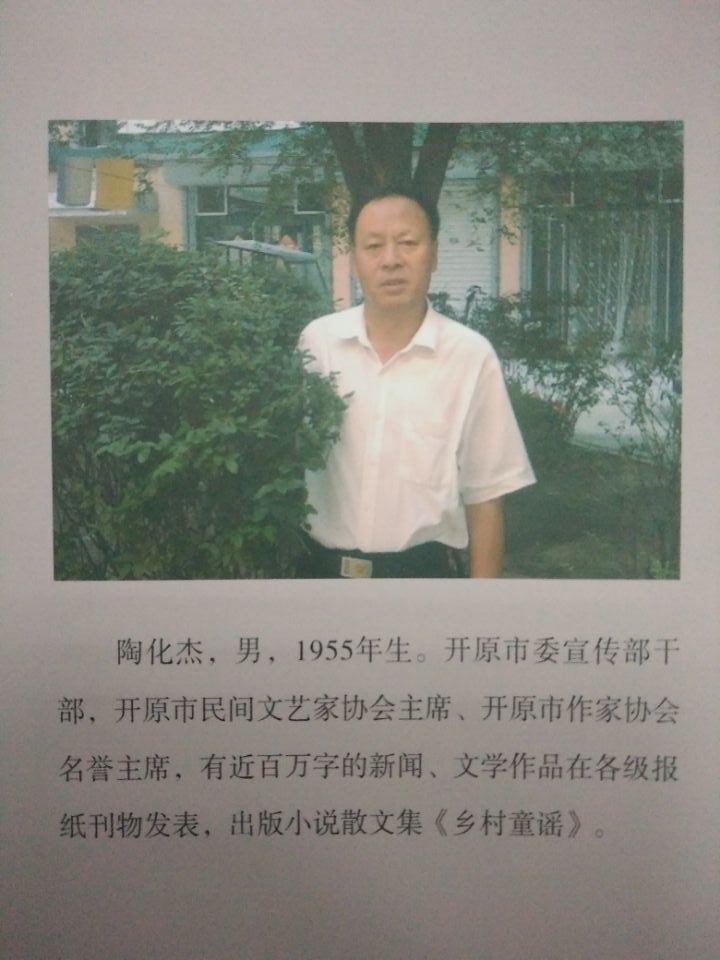 陶化杰，男，1955年生。开原市委宣传部干
部，开原市民间文艺家协会主席、开原市作家协会
名誉主席，有近百万字的新闻、文学作品在各级报
纸刊物发表，出版小说散文集《乡村童谣》。